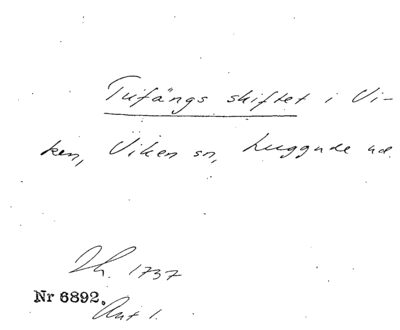 Tufängs skiftet i Vi-
ken, Viken sn, Luggude hd.
Th. 1737
Nr 6892.
Ant 1.